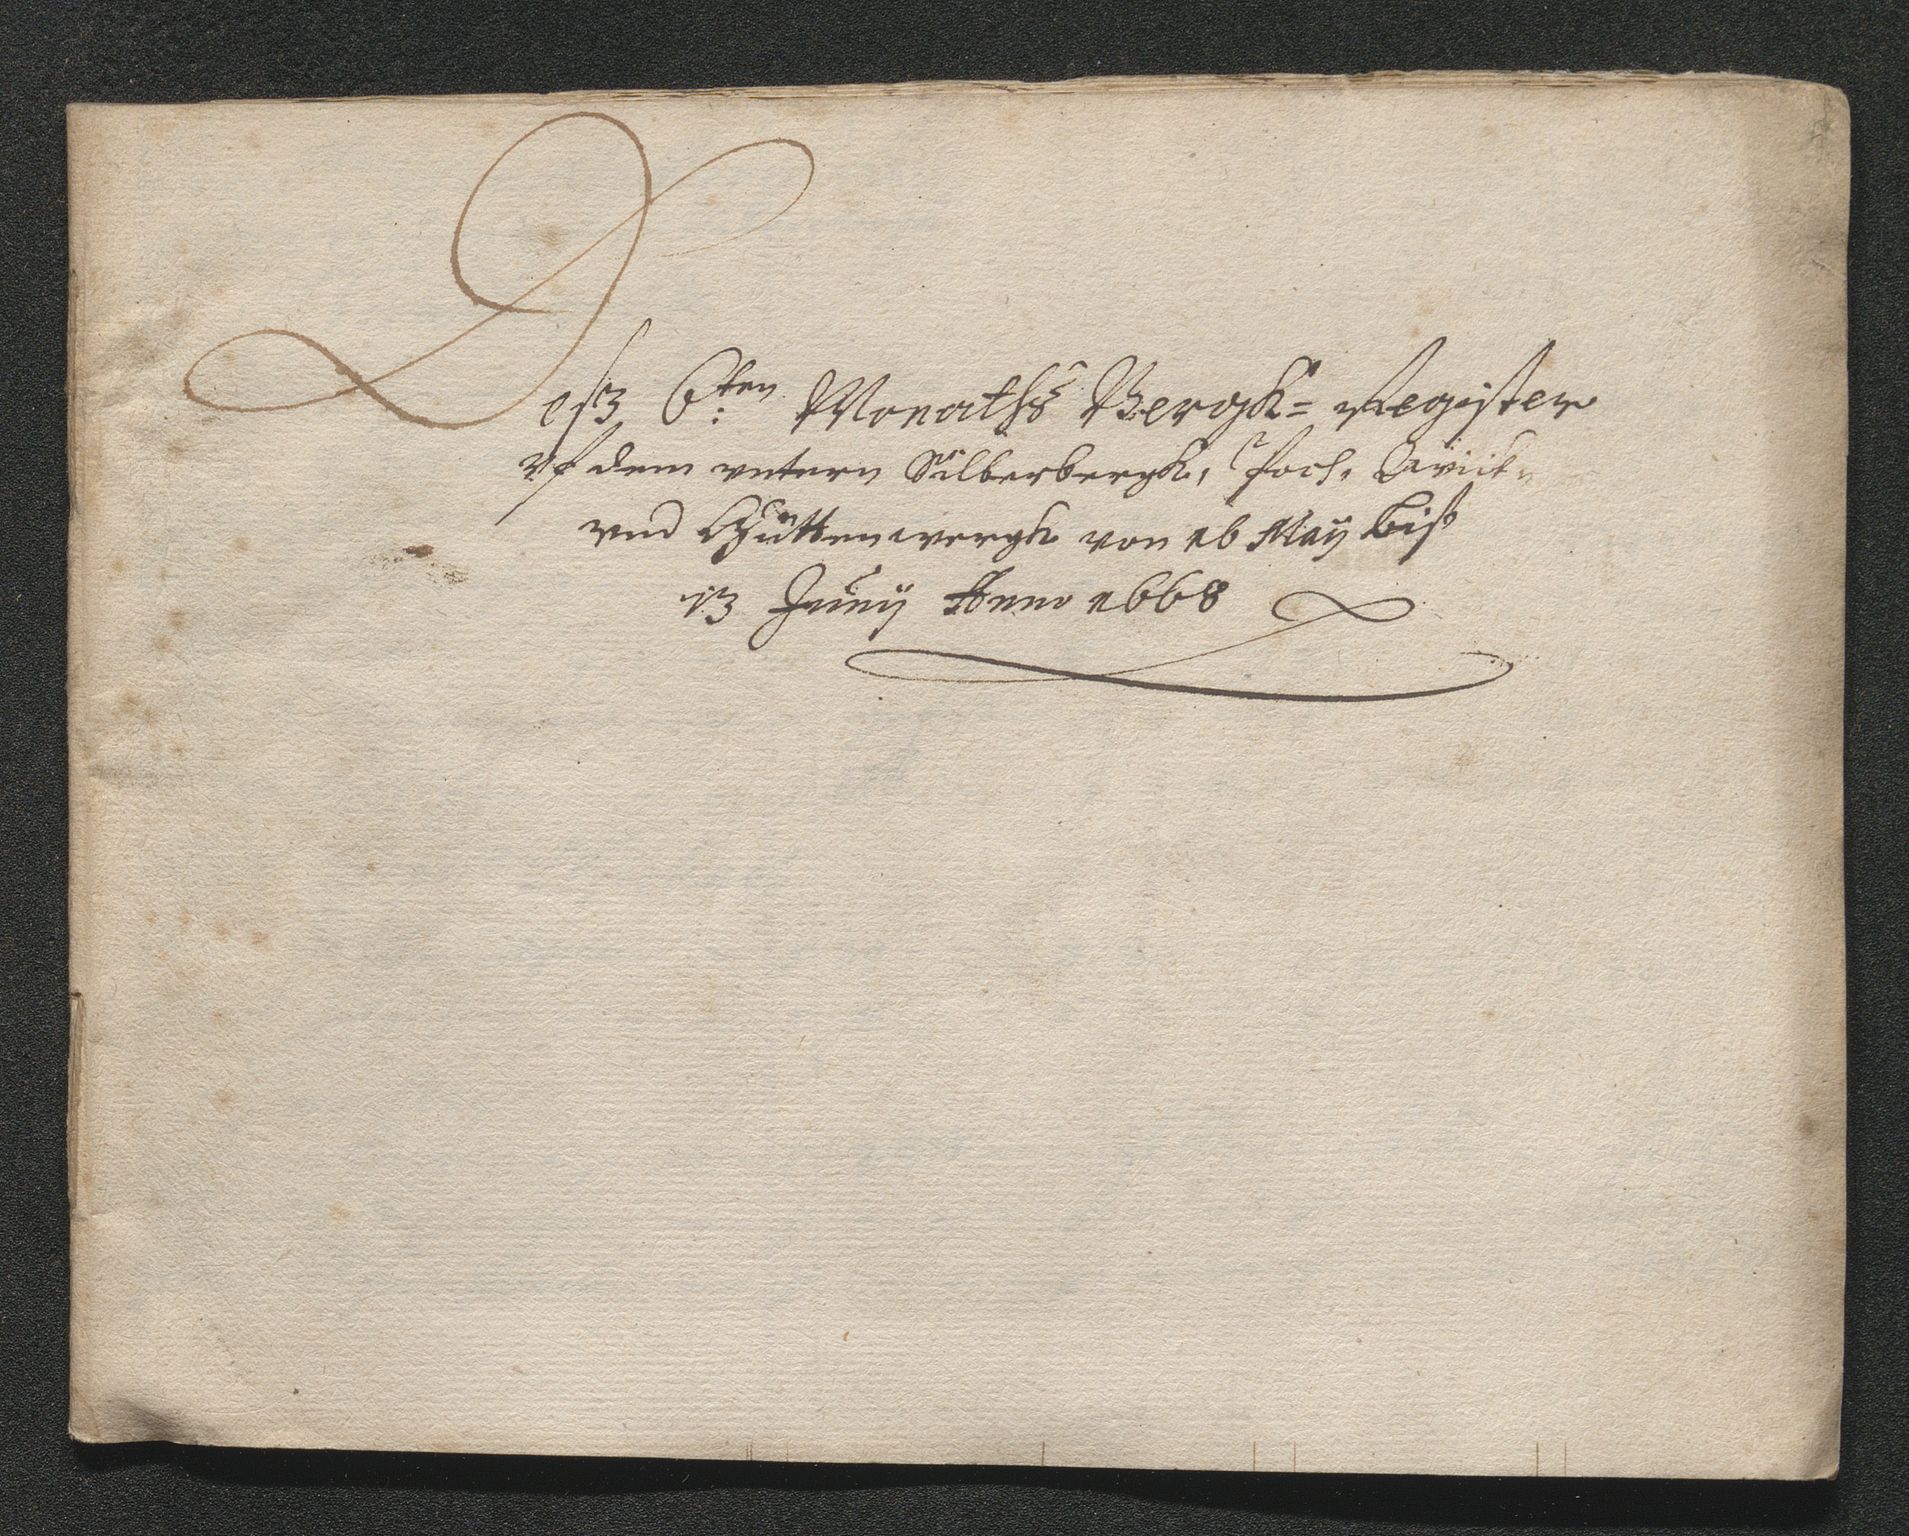 Deß 6:ten Monaths Bergk= Register
vf dem vntern Silberbergk, Poch,
vnd Hüttenwergk von 16 Maÿ biß
13 Junÿ Anno 1668